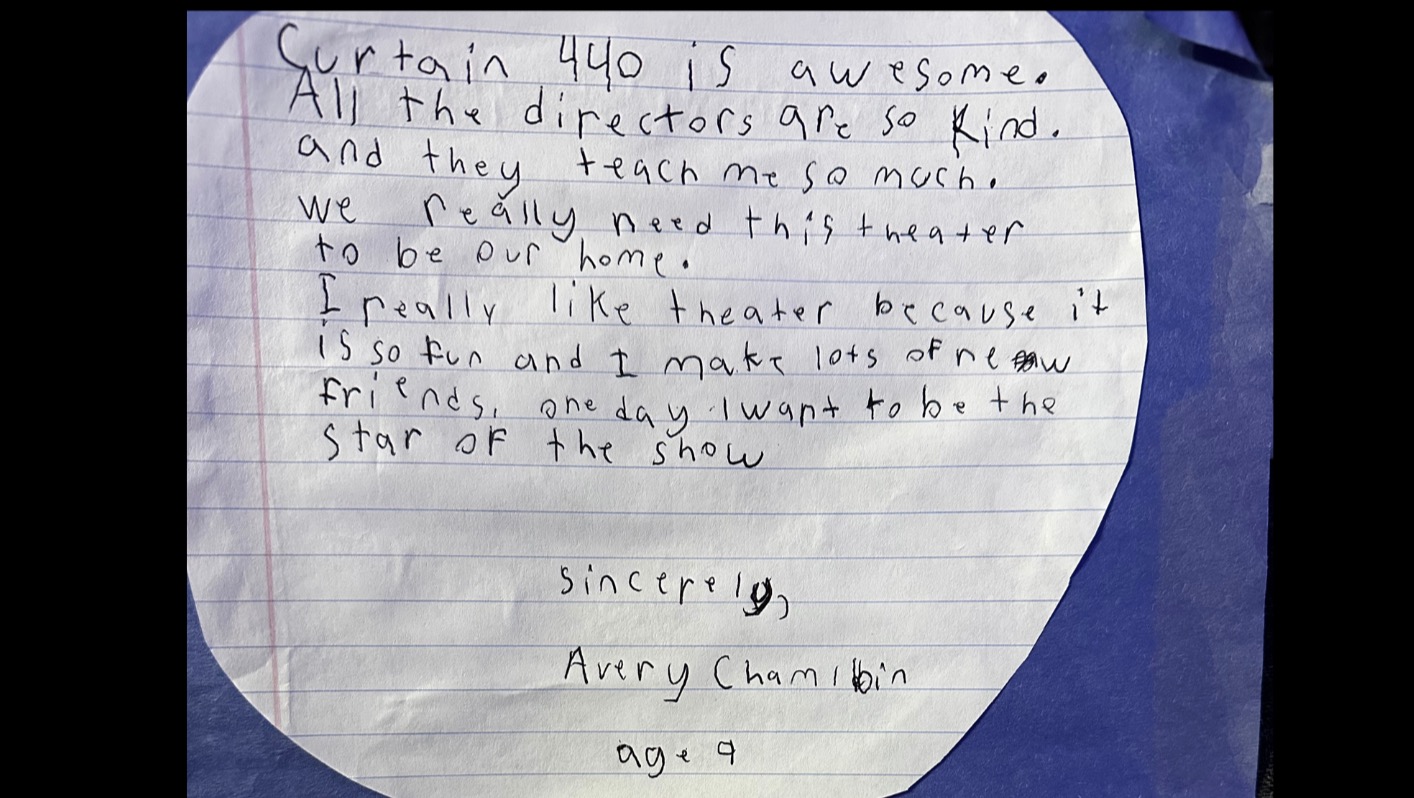 Curtain 440 is awesome.
All the directors are so kind.
and they teach me so much.
we really need this theater
to be our home.
I really like theater because it
is so fun and I make lots of new
friends, one day I want to be the
star of the show
sincerely,
Avery
age 9